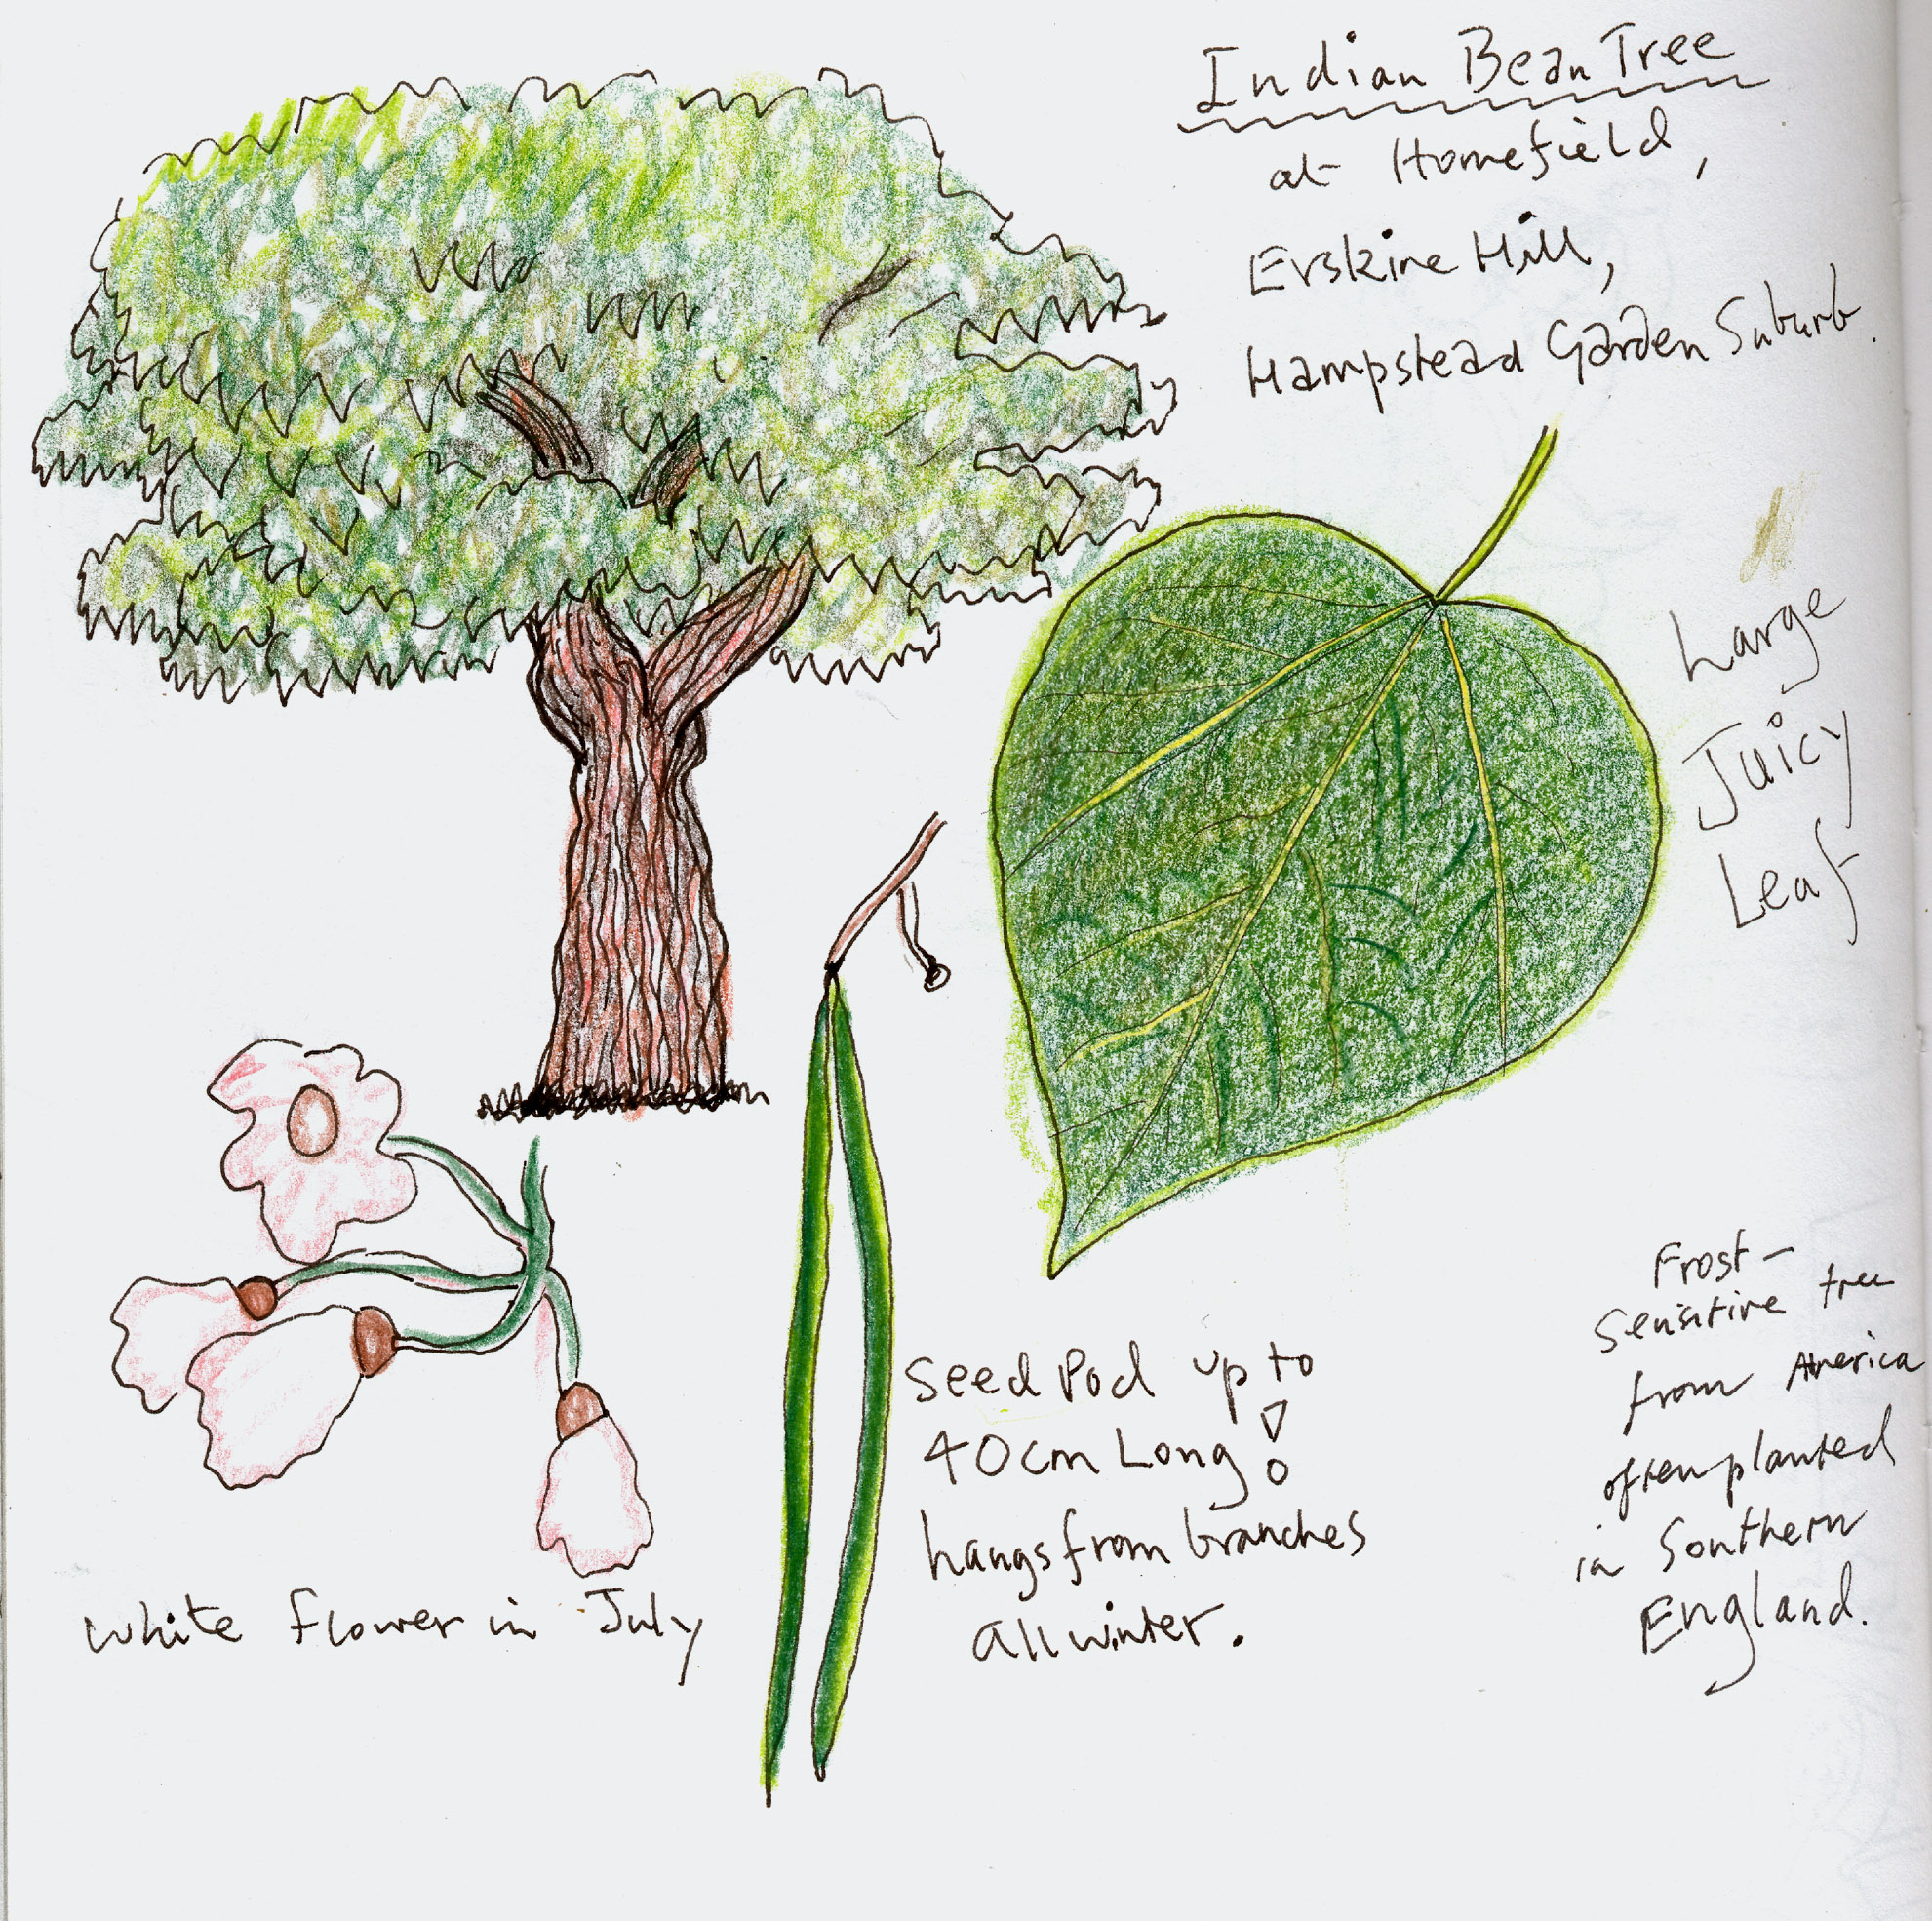 Indian Bean Tree
at Homefield,
Erskine Hill,
Hampstead Garden Suburb.
Large
Juicy
Leaf
Seed Pod up to
40cm Long!
hangs from branches
all winter.
White flower in July
Frost-
sensitive tree
from America
often planted
in Southern
England.